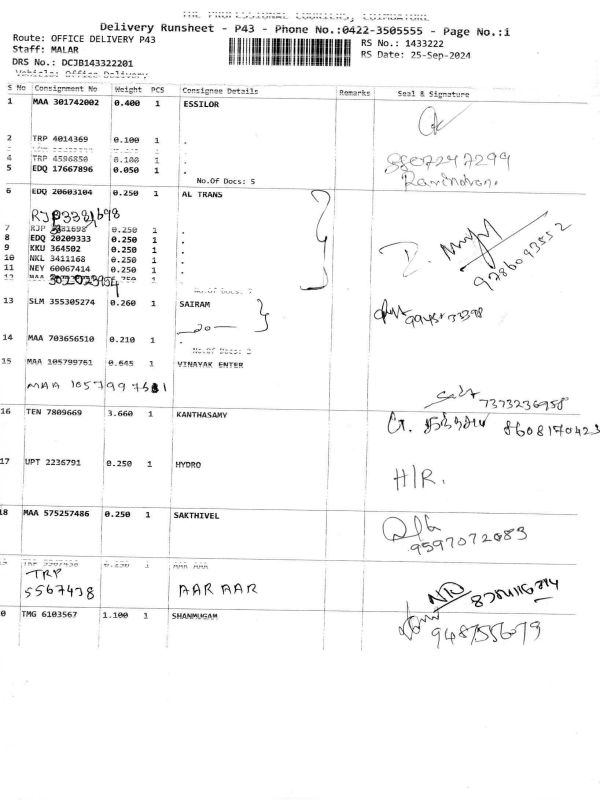 THE PROFESSIONAL COURIERS, COIMBATORE
Delivery Runsheet - P43 - Phone No.:0422-3505555 - Page No.:i
Route: OFFICE DELIVERY P43
RS No.: 1433222
Staff: MALAR
RS Date: 25-Sep-2024
DRS No.: DCJB143322201
Vehicle: Office Delivery
S No Consignment No Weight PCS Consignee Details Remarks Seal & Signature
1 MAA 301742002 0.400 1 ESSILOR
2 TRP 4014369 0.100 1 .
4 TRP 4596850 0.100 1 .
5 EDQ 17667896 0.050 1 .
No.Of Docs: 5
Ravindran.
6 EDQ 20603104 0.250 1 AL TRANS
RJP3381698
7 RJP 3381698 0.250 1 .
8 EDQ 20209333 0.250 1 .
9 KKU 364502 0.250 1 .
9786093552
10 NKL 3411168 0.250 1 .
11 NEY 60067414 0.250 1 .
12 MAA 0.250 1
No.Of Docs: 7
13 SLM 355305274 0.260 1 SAIRAM
20
14 MAA 703656510 0.210 1 .
No.Of Docs: 2
15 MAA 105799761 0.645 1 VINAYAK ENTER
7373236958
16 TEN 7809669 3.660 1 KANTHASAMY
8608170423
17 UPT 2236791 0.250 1 HYDRO
H/R.
18 MAA 575257486 0.250 1 SAKTHIVEL
9597072083
TRP 5567438 0.250 1 AAR AAR
TRP
5567438 AAR AAR
20 TMG 6103567 1.100 1 SHANMUGAM